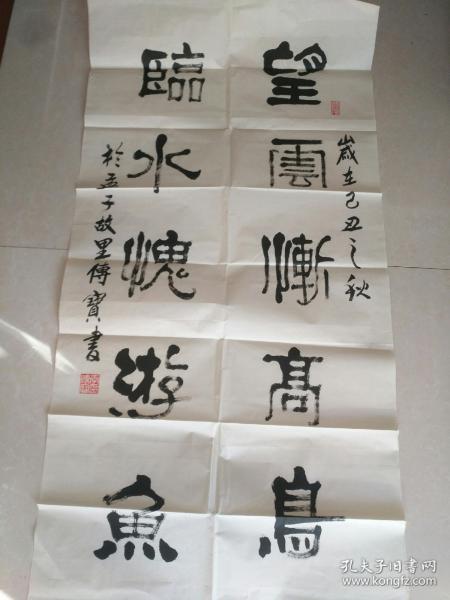 歲在己丑之秋
望雲慚高鳥
臨水愧游魚
於孟子故里傳寶書
孔夫子旧书网
www.kongfz.com